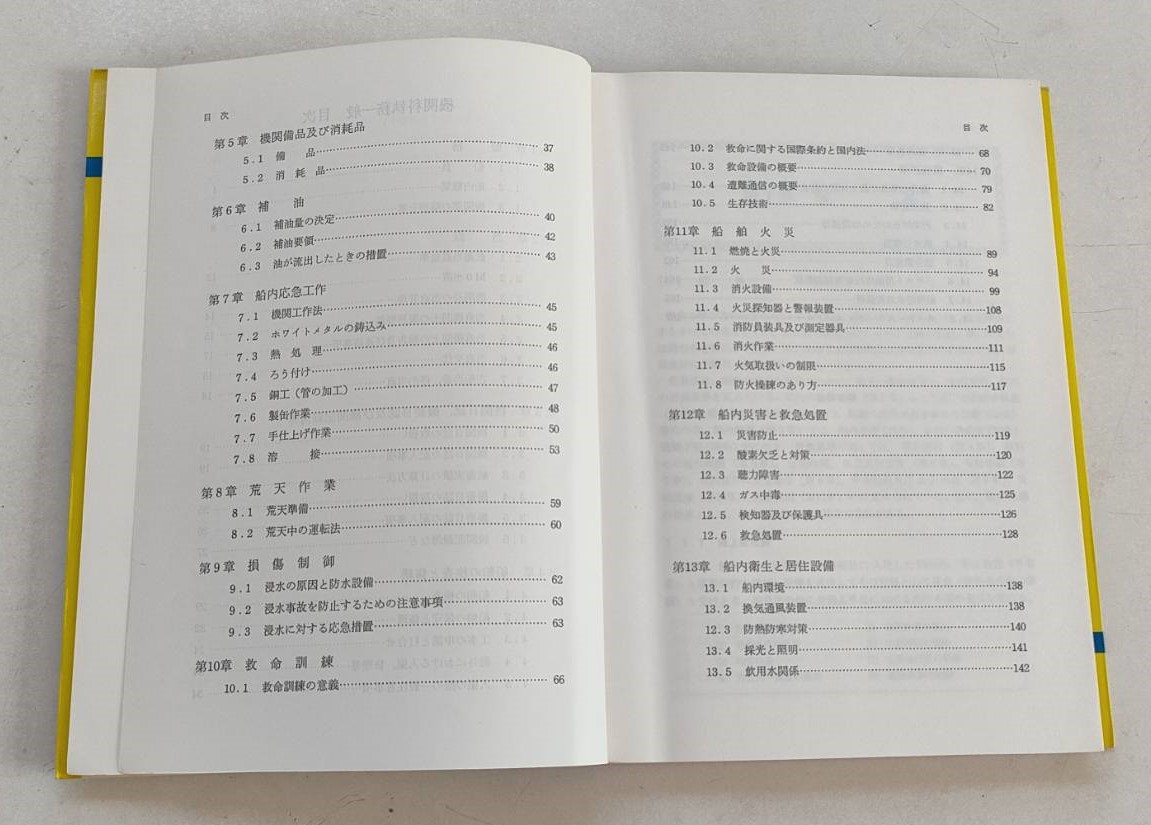 目次
第5章 機関備品及び消耗品
5.1 備品 37
5.2 消耗品 38
第6章 補油
6.1 補油量の決定 40
6.2 補油要領 42
6.3 油が流出したときの措置 43
第7章 船内応急工作
7.1 機関工作法 45
7.2 ホワイトメタルの鋳込み 45
7.3 熱処理 46
7.4 ろう付け 46
7.5 銅工(管の加工) 47
7.6 製缶作業 48
7.7 手仕上げ作業 50
7.8 溶接 53
第8章 荒天作業
8.1 荒天準備 59
8.2 荒天中の運転法 60
第9章 損傷制御
9.1 浸水の原因と防水設備 62
9.2 浸水事故を防止するための注意事項 63
9.3 浸水に対する応急措置 63
第10章 救命訓練
10.1 救命訓練の意義 66
目次
10.2 救命に関する国際条約と国内法 68
10.3 救命設備の概要 70
10.4 遭難通信の概要 79
10.5 生存技術 82
第11章 船舶火災
11.1 燃焼と火災 89
11.2 火災 94
11.3 消火設備 99
11.4 火災探知器と警報装置 108
11.5 消防員装具及び測定器具 109
11.6 消火作業 111
11.7 火気取扱いの制限 115
11.8 防火操練のあり方 117
第12章 船内災害と救急処置
12.1 災害防止 119
12.2 酸素欠乏と対策 120
12.3 聴力障害 122
12.4 ガス中毒 125
12.5 検知器及び保護具 126
12.6 救急処置 128
第13章 船内衛生と居住設備
13.1 船内環境 138
13.2 換気通風装置 138
12.3 防熱防寒対策 140
13.4 採光と照明 141
13.5 飲用水関係 142